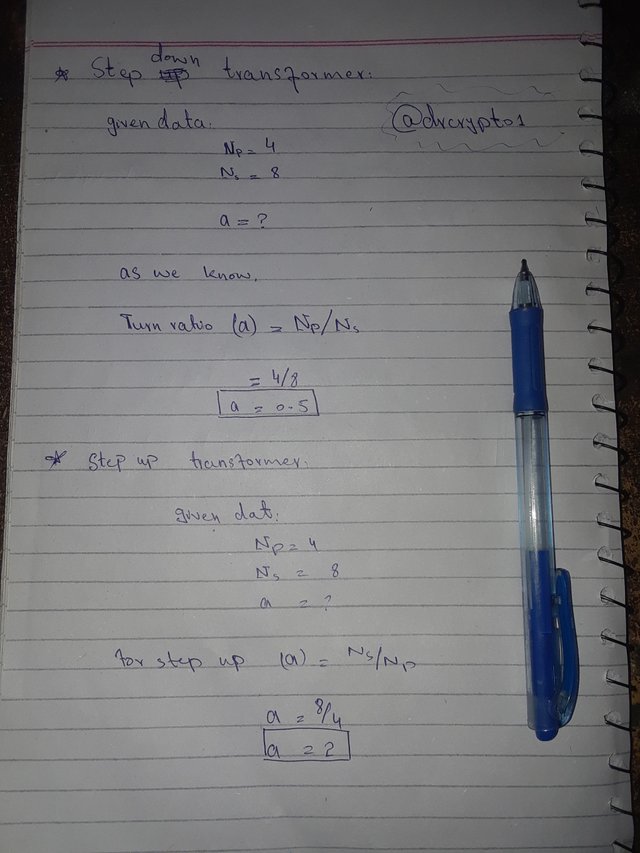 * Step down transformer:
@drcrypto1
given data:
Np = 4
Ns = 8
a = ?
as we know.
Turn ratio (a) = Np/Ns
= 4/8
a = 0.5
* Step up transformer:
given dat:
Np = 4
Ns = 8
a = ?
for step up (a) = Ns/Np
a = 8/4
a = 2